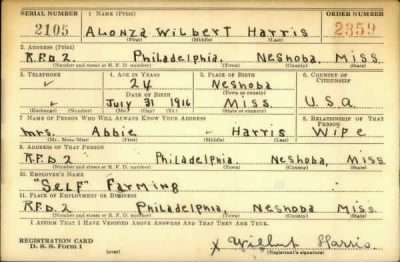 SERIAL NUMBER 1. NAME (Print) ORDER NUMBER
2105 ALONZA WILBERT HARRIS 2359
(First) (Middle) (Last)
2. ADDRESS (Print)
R.F.D 2. Philadelphia, Neshoba, Miss.
(Number and street or R. F. D. number) (Town) (County) (State)
3. TELEPHONE 4. AGE IN YEARS 5. PLACE OF BIRTH 6. COUNTRY OF CITIZENSHIP
24 Neshoba
DATE OF BIRTH (Town or county)
July 31 1916 Miss. U.S.A
(Exchange) (Number) (Mo.) (Day) (Yr.) (State or country)
7. NAME OF PERSON WHO WILL ALWAYS KNOW YOUR ADDRESS 8. RELATIONSHIP OF THAT PERSON
Mrs. Abbie Harris Wife
(Mr., Mrs., Miss) (First) (Middle) (Last)
9. ADDRESS OF THAT PERSON
R.F.D 2 Philadelphia, Neshoba, Miss.
(Number and street or R. F. D. number) (Town) (County) (State)
10. EMPLOYER'S NAME
"Self" Farming
11. PLACE OF EMPLOYMENT OR BUSINESS
R.F.D. 2 Philadelphia, Neshoba, Miss
(Number and street or R. F. D. number) (Town) (County) (State)
I AFFIRM THAT I HAVE VERIFIED ABOVE ANSWERS AND THAT THEY ARE TRUE.
REGISTRATION CARD
D. S. S. Form 1 (over) X Wilbert Harris
(Registrant's signature)